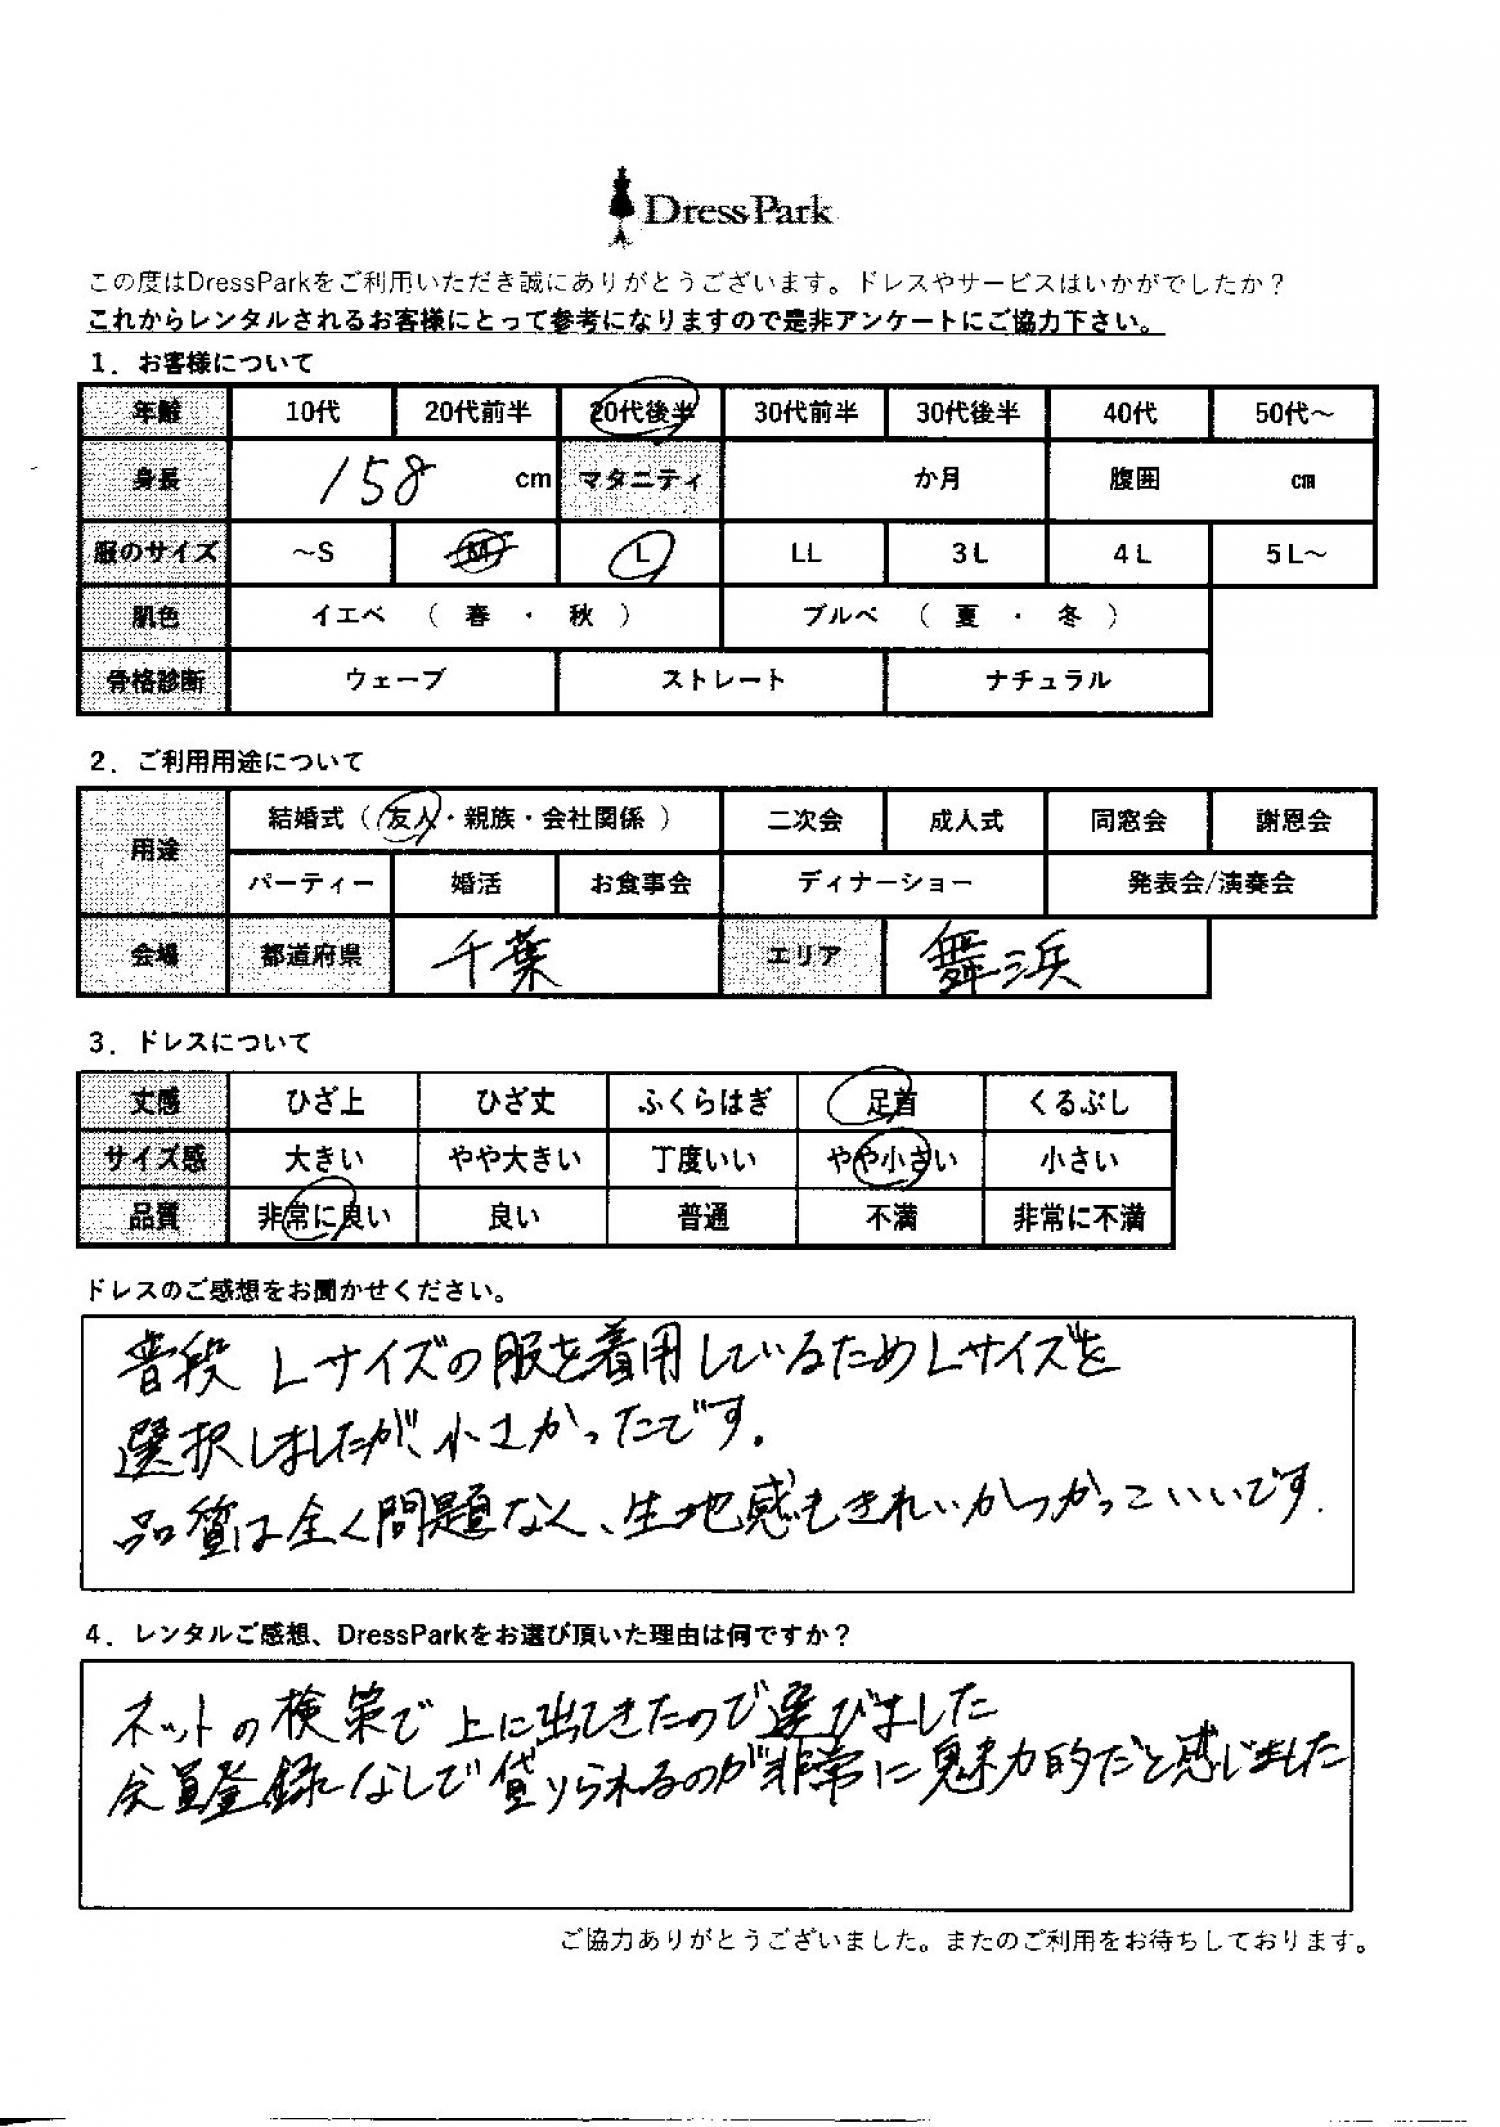 DressPark
この度はDressParkをご利用いただき誠にありがとうございます。ドレスやサービスはいかがでしたか？
これからレンタルされるお客様にとって参考になりますので是非アンケートにご協力下さい。
1．お客様について
年齢 10代 20代前半 20代後半 30代前半 30代後半 40代 50代～
身長 158 cm マタニティ か月 腹囲 cm
服のサイズ ～S M L LL 3L 4L 5L～
肌色 イエベ （ 春 ・ 秋 ） ブルベ （ 夏 ・ 冬 ）
骨格診断 ウェーブ ストレート ナチュラル
2．ご利用用途について
用途 結婚式（ 友人・親族・会社関係 ） 二次会 成人式 同窓会 謝恩会
パーティー 婚活 お食事会 ディナーショー 発表会/演奏会
会場 都道府県 千葉 エリア 舞浜
3．ドレスについて
丈感 ひざ上 ひざ丈 ふくらはぎ 足首 くるぶし
サイズ感 大きい やや大きい 丁度いい やや小さい 小さい
品質 非常に良い 良い 普通 不満 非常に不満
ドレスのご感想をお聞かせください。
普段 Lサイズの服を着用しているためLサイズを
選択しましたが、小さかったです。
品質は全く問題なく、生地感もきれいかつかっこいいです.
4．レンタルご感想、DressParkをお選び頂いた理由は何ですか？
ネットの検策で上に出てきたので選びました
会員登録なしで借りられるのが非常に魅力的だと感じました
ご協力ありがとうございました。またのご利用をお待ちしております。